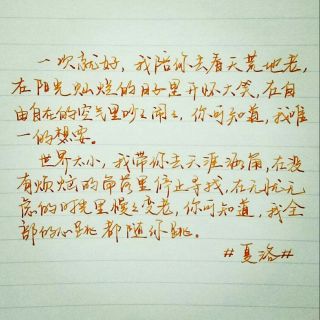 一次就好，我陪你去看天荒地老，
在阳光灿烂的日子里开怀大笑，在自
由自在的空气里吵吵闹闹，你可知道，我唯
一的想要。
世界太小，我带你去天涯海角，在没
有烦恼的角落里停止寻找，在无忧无
虑的时光里慢慢变老，你可知道，我全
部的心跳都随你跳。
#夏洛#